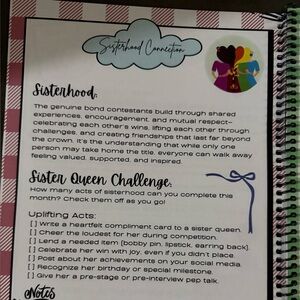 Sisterhood Connection
Sisterhood:
The genuine bond contestants build through shared
experiences, encouragement, and mutual respect-
celebrating each other's wins, lifting each other through
challenges, and creating friendships that last far beyond
the crown. It's the understanding that while only one
person may take home the title, everyone can walk away
feeling valued, supported, and inspired.
Sister Queen Challenge:
How many acts of sisterhood can you complete this
month? Check them off as you go!
Uplifting Acts:
[ ] Write a heartfelt compliment card to a sister queen.
[ ] Cheer the loudest for her during competition.
[ ] Lend a needed item (bobby pin, lipstick, earring back).
[ ] Celebrate her win with joy, even if you didn't place.
[ ] Post about her achievements on your social media.
[ ] Recognize her birthday or special milestone.
[ ] Give her a pre-stage or pre-interview pep talk.
Notes